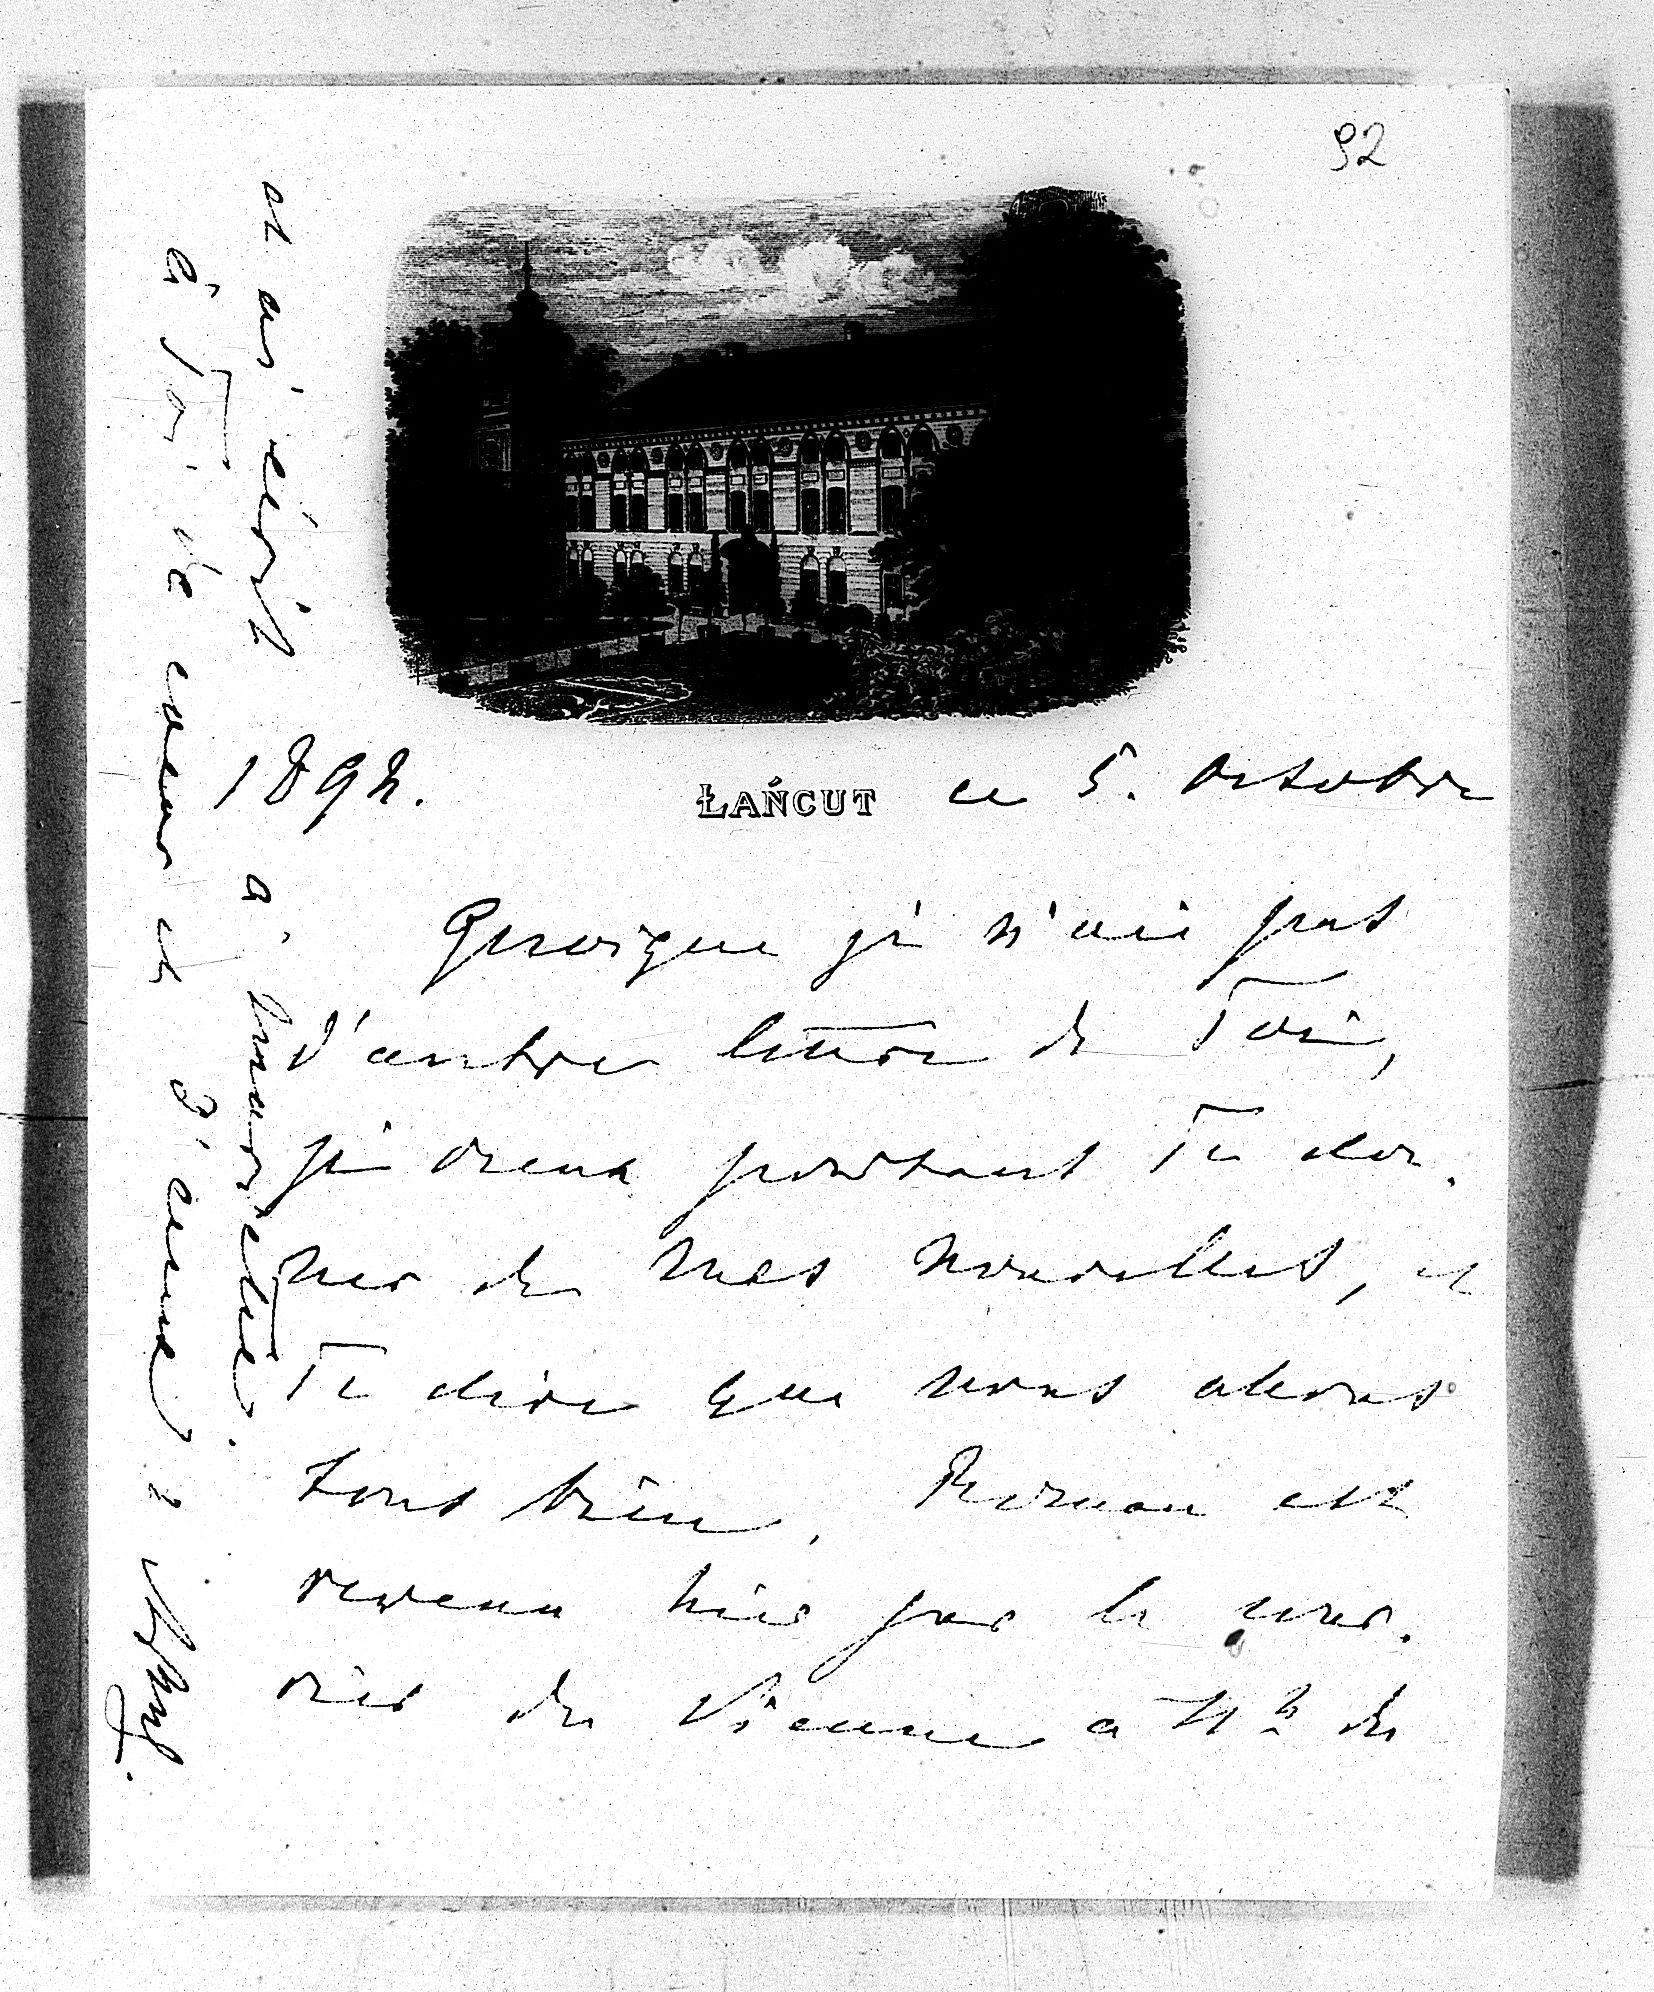 92
ŁAŃCUT ce 5. Octobre
1892.
Quoique je n'aie pas
d'autre lettre de Toi,
je veux pourtant Te don-
ner de mes nouvelles, et
Te dire que nous allons
tous bien. Roman est
revenu hier par le cour-
rier de Vienne a 4h de
et m'écrit a Henriette.
à Toi de coeur et d'âme